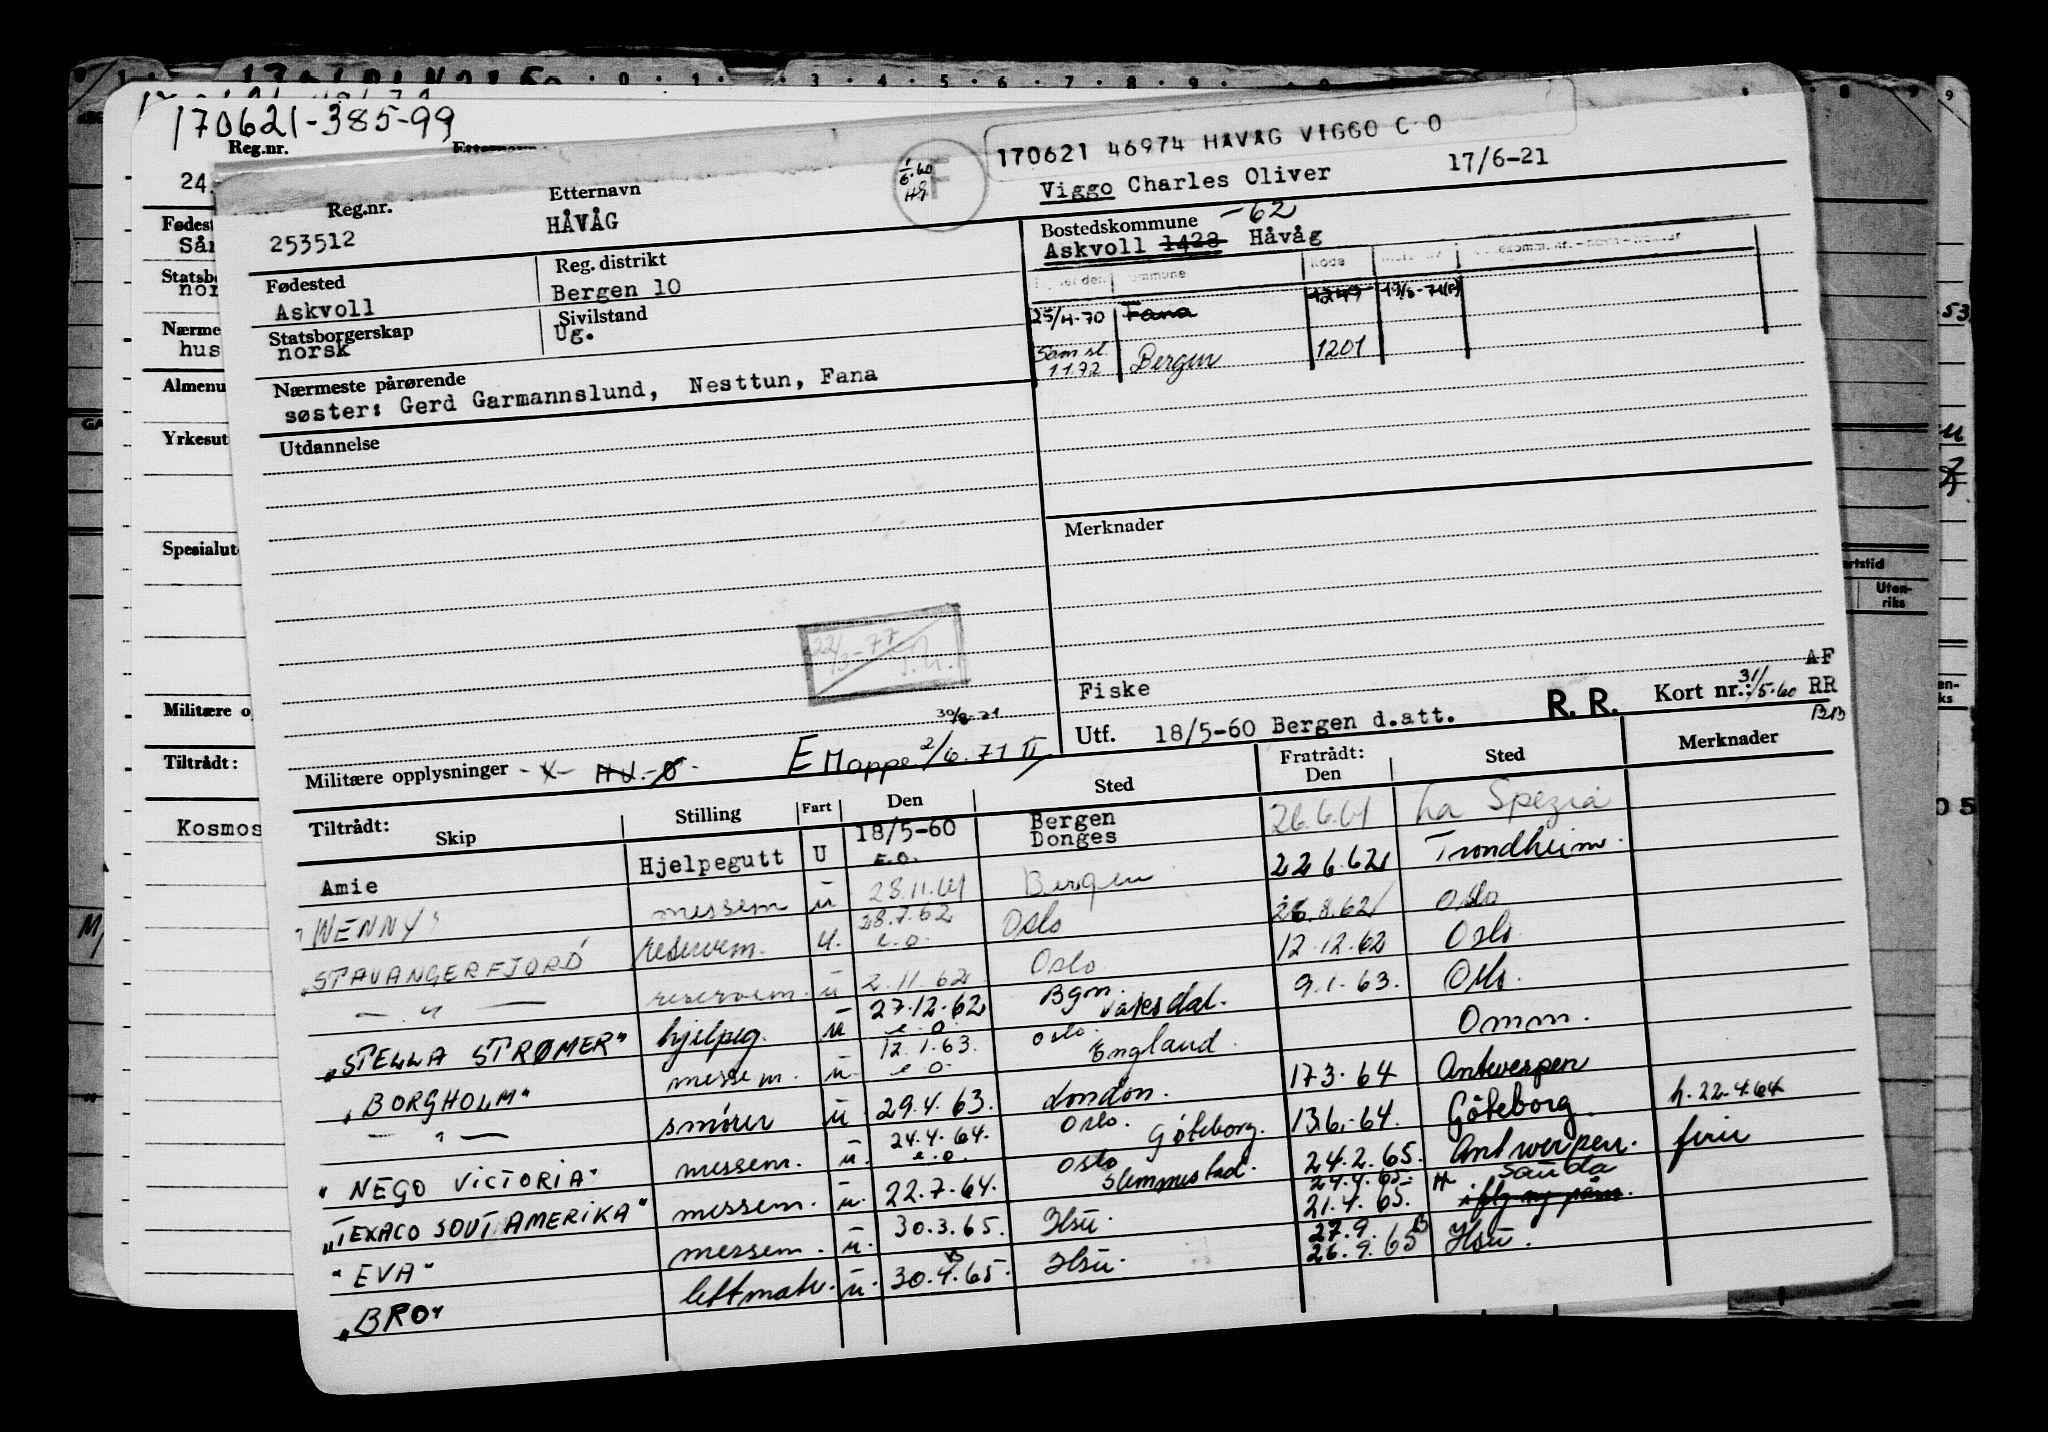 170621-385-99
Reg.nr.
24.
Fødest
Statsb
nor
Nærme
hus
Almenu
Yrkesut
Spesialut
Militære o
Tiltrådt:
Kosmos
170621 46974 HÅVÅG VIGGO C O
Reg.nr. Etternavn
253512 HÅVÅG
Viggo Charles Oliver 17/6-21
Fødested Reg. distrikt
Askvoll Bergen 10
Statsborgerskap Sivilstand
norsk Ug.
Nærmeste pårørende
søster: Gerd Garmannslund, Nesttun, Fana
Utdannelse
Bostedskommune -62
Askvoll 1428 Håvåg
25/4-70 Fana 1249
Sam.sl. 1172 Bergen 1201
Merknader
22/3-77
Fiske
AF
R. R. Kort nr.: 31/5-60 RR
Utf. 18/5-60 Bergen d.att.
30/8-71
Militære opplysninger -X- HV.-Ø- E Mappe 2/6.71 II
Tiltrådt: Skip Stilling Fart Den Sted Fratrådt: Den Sted Merknader
Amie Hjelpegutt U 18/5-60 e.o. Bergen Donges 26.6.61 La Spezia
"WENNY" messem u 28.11.61 Bergen 22.6.62 Trondheim.
"STAVANGERFJORD" reservem. u. 28.7.62 e.o. Oslo 26.8.62 Oslo
— " — reservem. u 2.11.62 Oslo 12.12.62 Oslo
"STELLA STRØMER" hjelpeg. u 27.12.62 e.o. Bgn. Vaksdal. 9.1.63. Oslo.
"BORGHOLM" messem. u. 12.1.63. e.o. Oslo. England. Omm.
— " — smører u 29.4.63. London. 17.3.64 Antwerpen
"NEGO VICTORIA" messem. u. 24.4.64. e.o. Oslo. Göteborg. 13.6.-64. Göteborg. h.22.4.64
"TEXACO SOUT AMERIKA" messem. u. 22.7.64. Oslo Slemmestad. 24.2.65. Antwerpen. ferie
"EVA" messem. u. 30.3.65. Hsu. 24.4.65. 21.4.65. H Sauda
"BRO" lettmatr. u. 30.4.65. Hsu. 27.9. 26.9.65 Hsu.